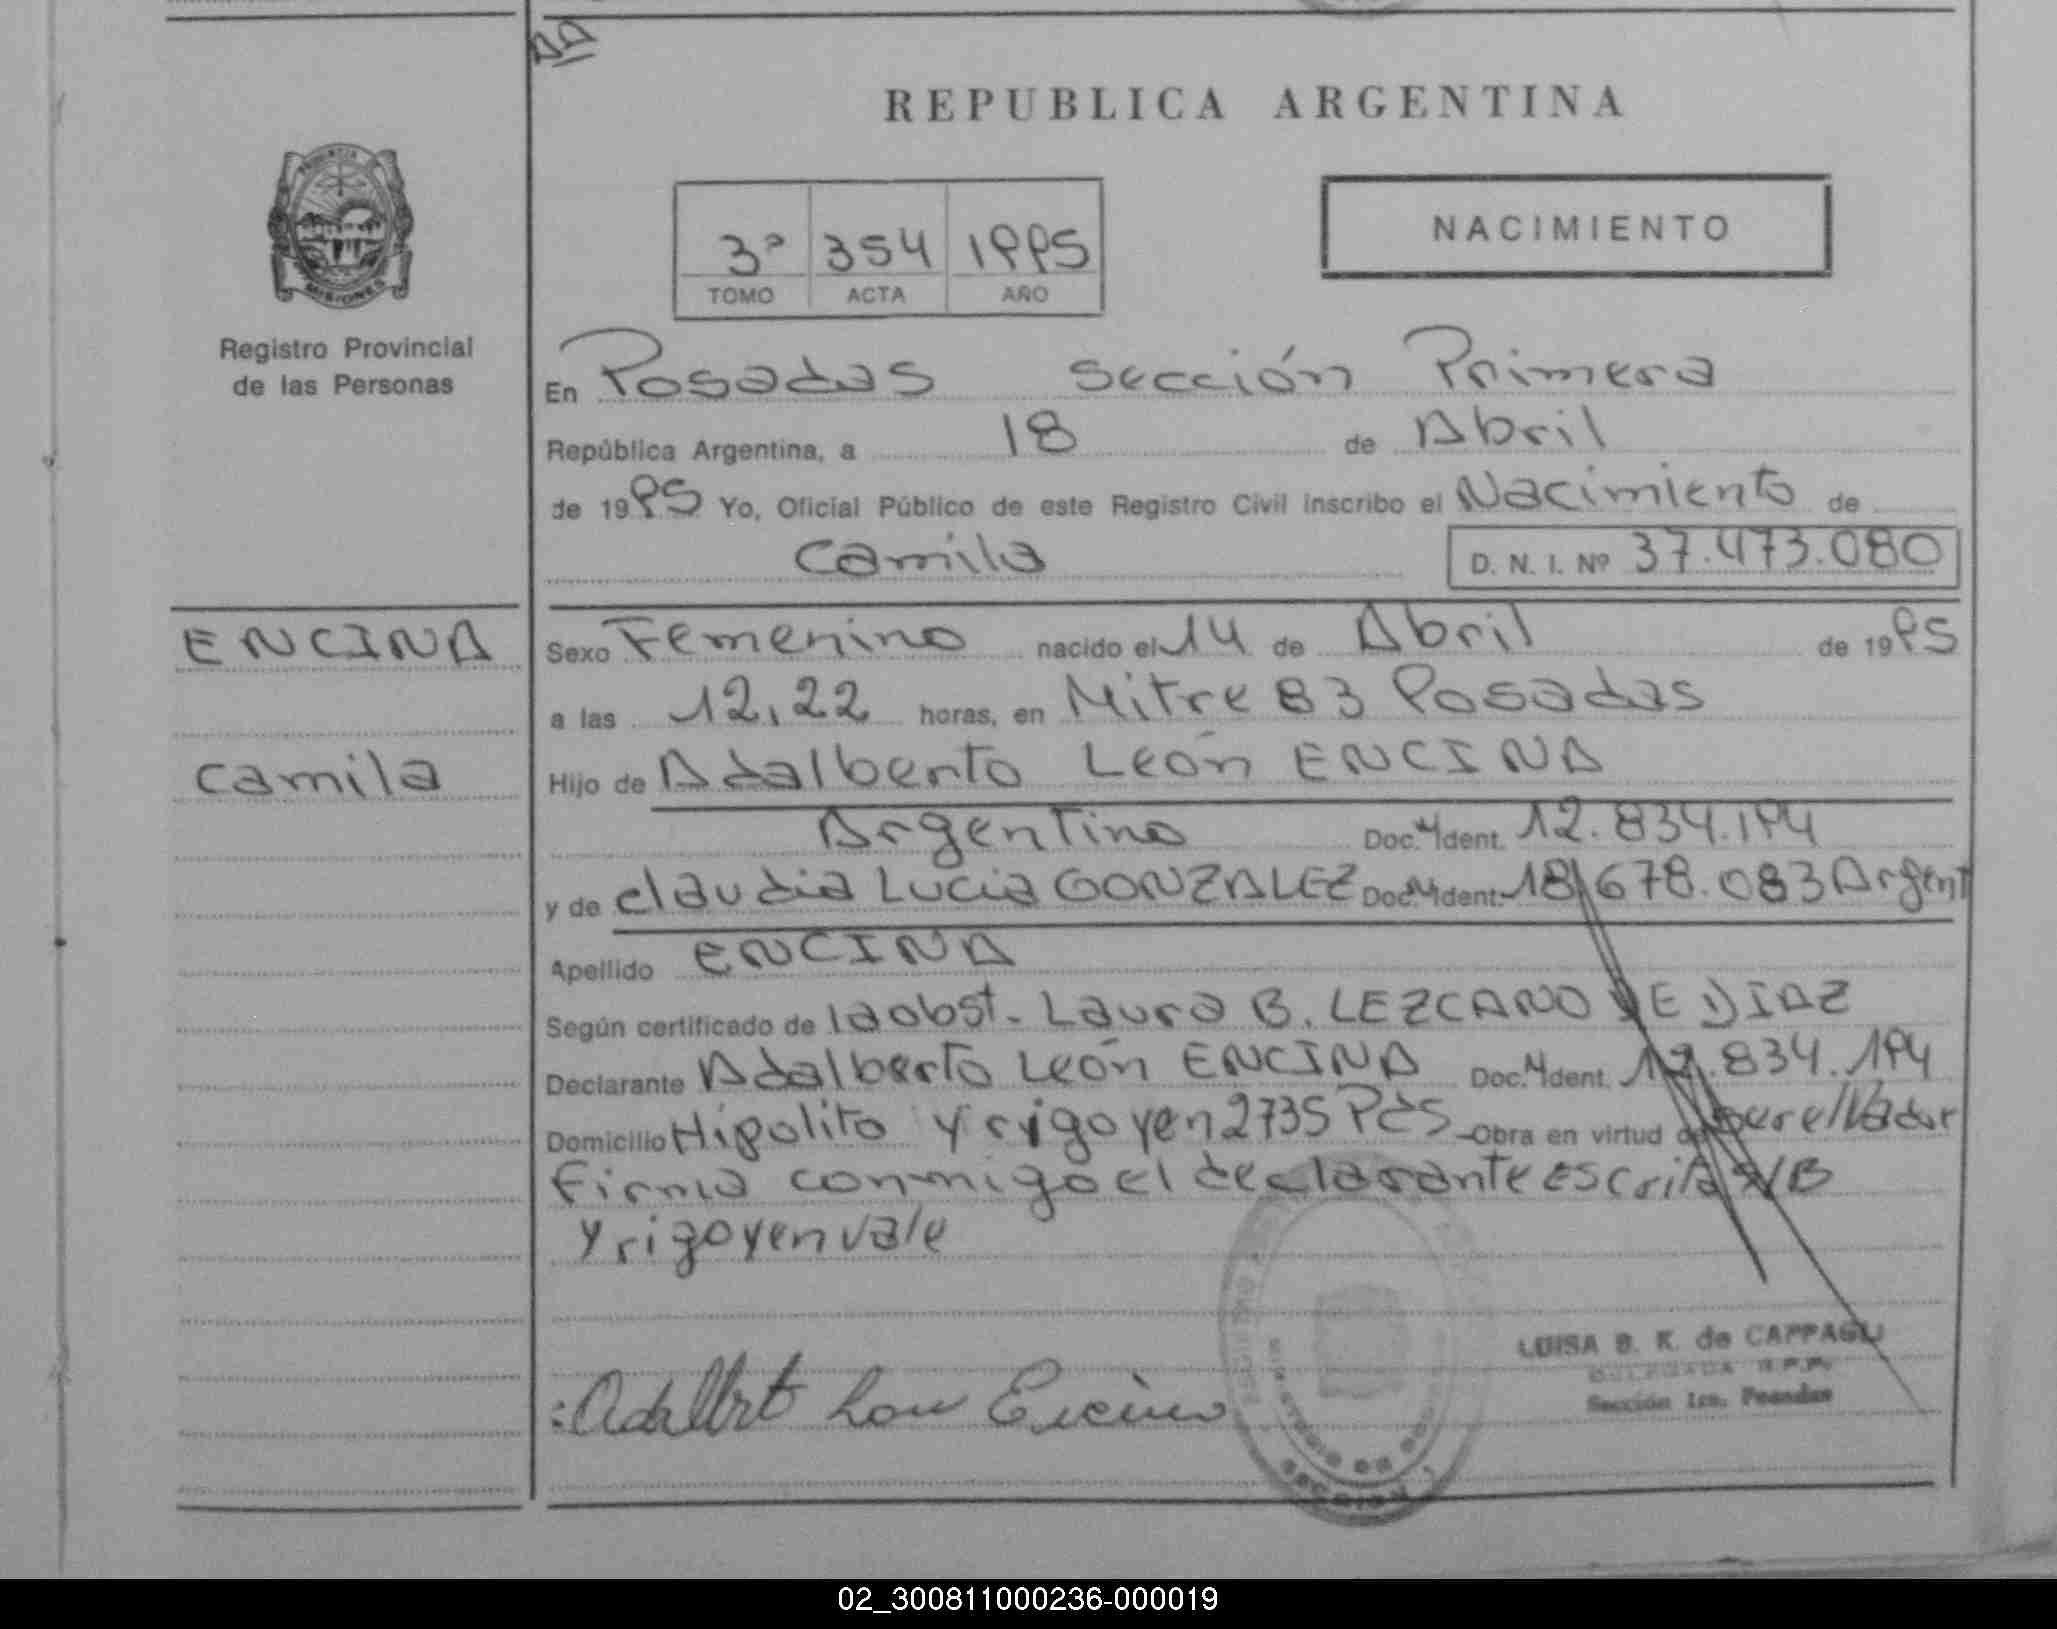 REPUBLICA ARGENTINA
PROVINCIA
MISIONES
Registro Provincial
de las Personas
3º 354 1995
TOMO ACTA AÑO
NACIMIENTO
En Posadas sección Primera
República Argentina, a 18 de Abril
de 1995 Yo, Oficial Público de este Registro Civil inscribo el Nacimiento de
Camila D. N. I. Nº 37.473.080
ENCINA
Camila
Sexo Femenino nacido el 14 de Abril de 1995
a las 12,22 horas, en Mitre 83 Posadas
Hijo de Adalberto León ENCINA
Argentino Doc. Ident. 12.834.194
y de Claudia Lucia GONZALEZ Doc. Ident. 18.678.083 Argent
Apellido ENCINA
Según certificado de la obst. Laura B. LEZCANO DE DIAZ
Declarante Adalberto León ENCINA Doc. Ident. 12.834.194
Domicilio Hipolito Yrigoyen 2735 Pds Obra en virtud de
Firma conmigo el declarante Escrita S/B
Yrigoyen vale
LUISA B. K. de CAPPAGLI
DELEGADA R.P.P.
Sección 1ra. Posadas
Adalberto Leon Encina
02_300811000236-000019